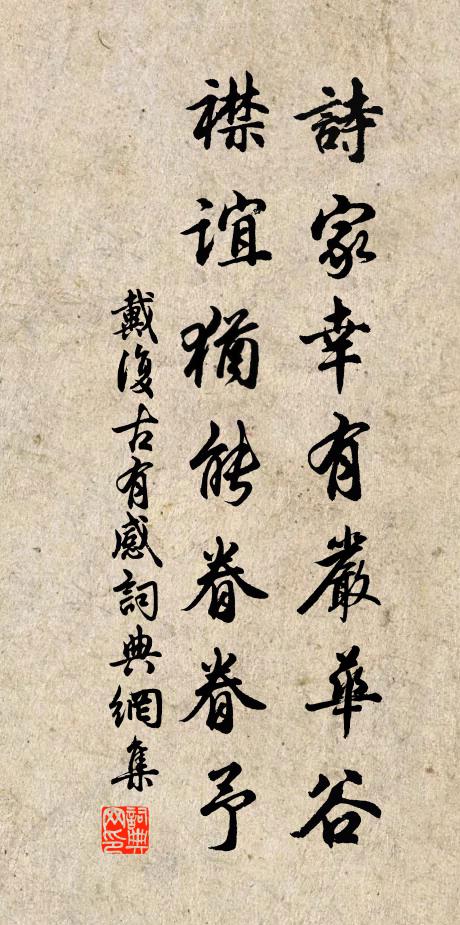 詩家幸有嚴華谷
襟誼猶能眷眷予
戴復古有感詞典網集
詞典网印